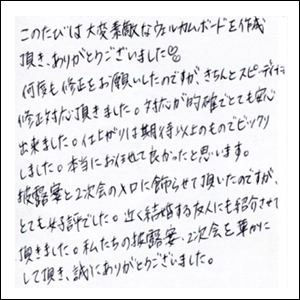 このたびは大変素敵なウェルカムボードを作成
頂き、ありがとうございました
何度も修正をお願いしたのですが、きちんとスピーディに
修正対応頂きました。対応が的確でとても安心
出来ました。仕上がりは期待以上のものでビックリ
しました。本当にお任せて良かったと思います。
披露宴と2次会の入口に飾らせて頂いたのですが、
とても好評でした。近く結婚する友人にも紹介させて
頂きました。私たちの披露宴、2次会を華やかに
して頂き、誠にありがとうございました。